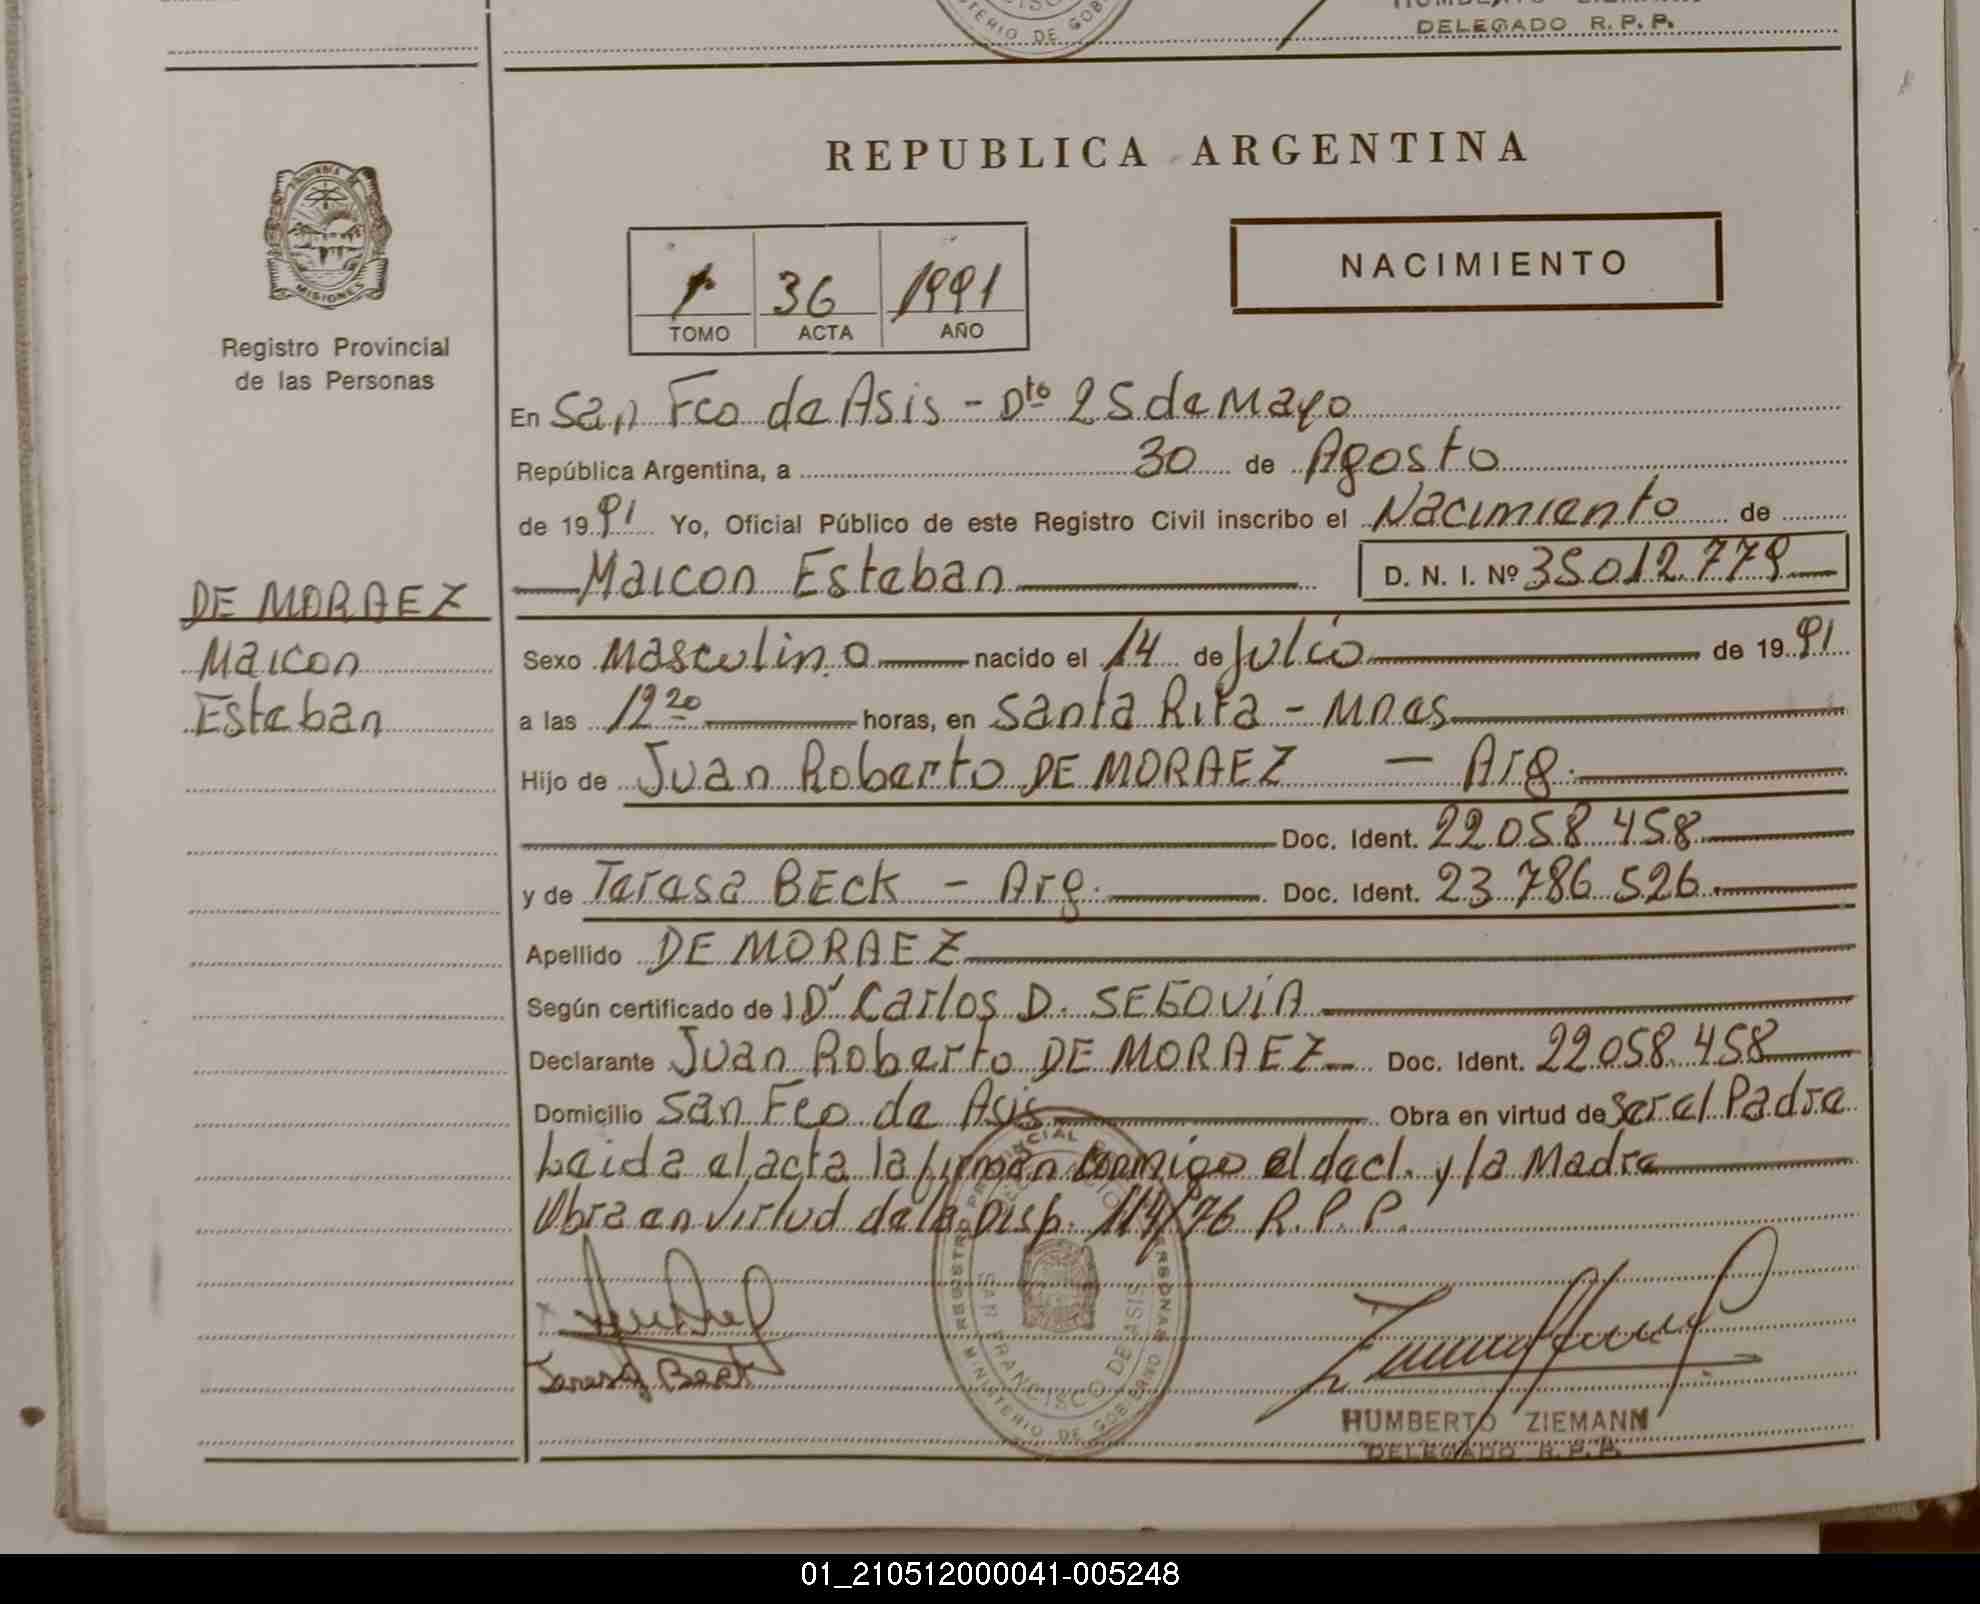 DELEGADO R.P.P.
MINISTERIO DE GOB
REPUBLICA ARGENTINA
MISIONES
Registro Provincial
de las Personas
1 36 1991
TOMO ACTA AÑO
NACIMIENTO
En San Fco de Asis - Dto 25 de Mayo
República Argentina, a 30 de Agosto
de 1991 Yo, Oficial Público de este Registro Civil inscribo el Nacimiento de
Maicon Esteban D. N. I. Nº 35.012.779
DE MORAEZ
Maicon
Esteban
Sexo Masculino nacido el 14 de Julio de 1991
a las 12 20 horas, en Santa Rita - Mnes
Hijo de Juan Roberto DE MORAEZ - Arg.
Doc. Ident. 22.058.458
y de Teresa BECK - Arg. Doc. Ident. 23.786.526
Apellido DE MORAEZ
Según certificado de Dr Carlos D. SEGOVIA
Declarante Juan Roberto DE MORAEZ Doc. Ident. 22.058.458
Domicilio San Fco de Asis Obra en virtud de Ser el Padre
Leida el acta la firman conmigo el decl. y la Madre
Obra en virtud de la Disp. 114/76 R.P.P.
SAN FRANCISCO DE ASIS
MINISTERIO DE GOBIERNO
Teresa Beck
HUMBERTO ZIEMANN
DELEGADO R.P.P.
01_210512000041-005248